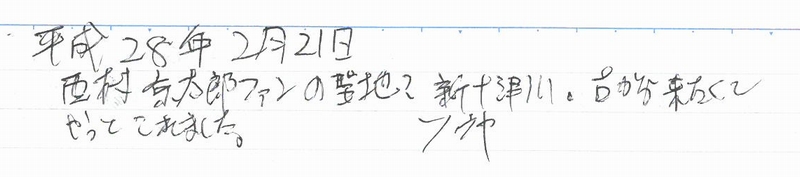 平成28年2月21日
西村京太郎ファンの聖地?新十津川。古から来たくて
やっとこれました。